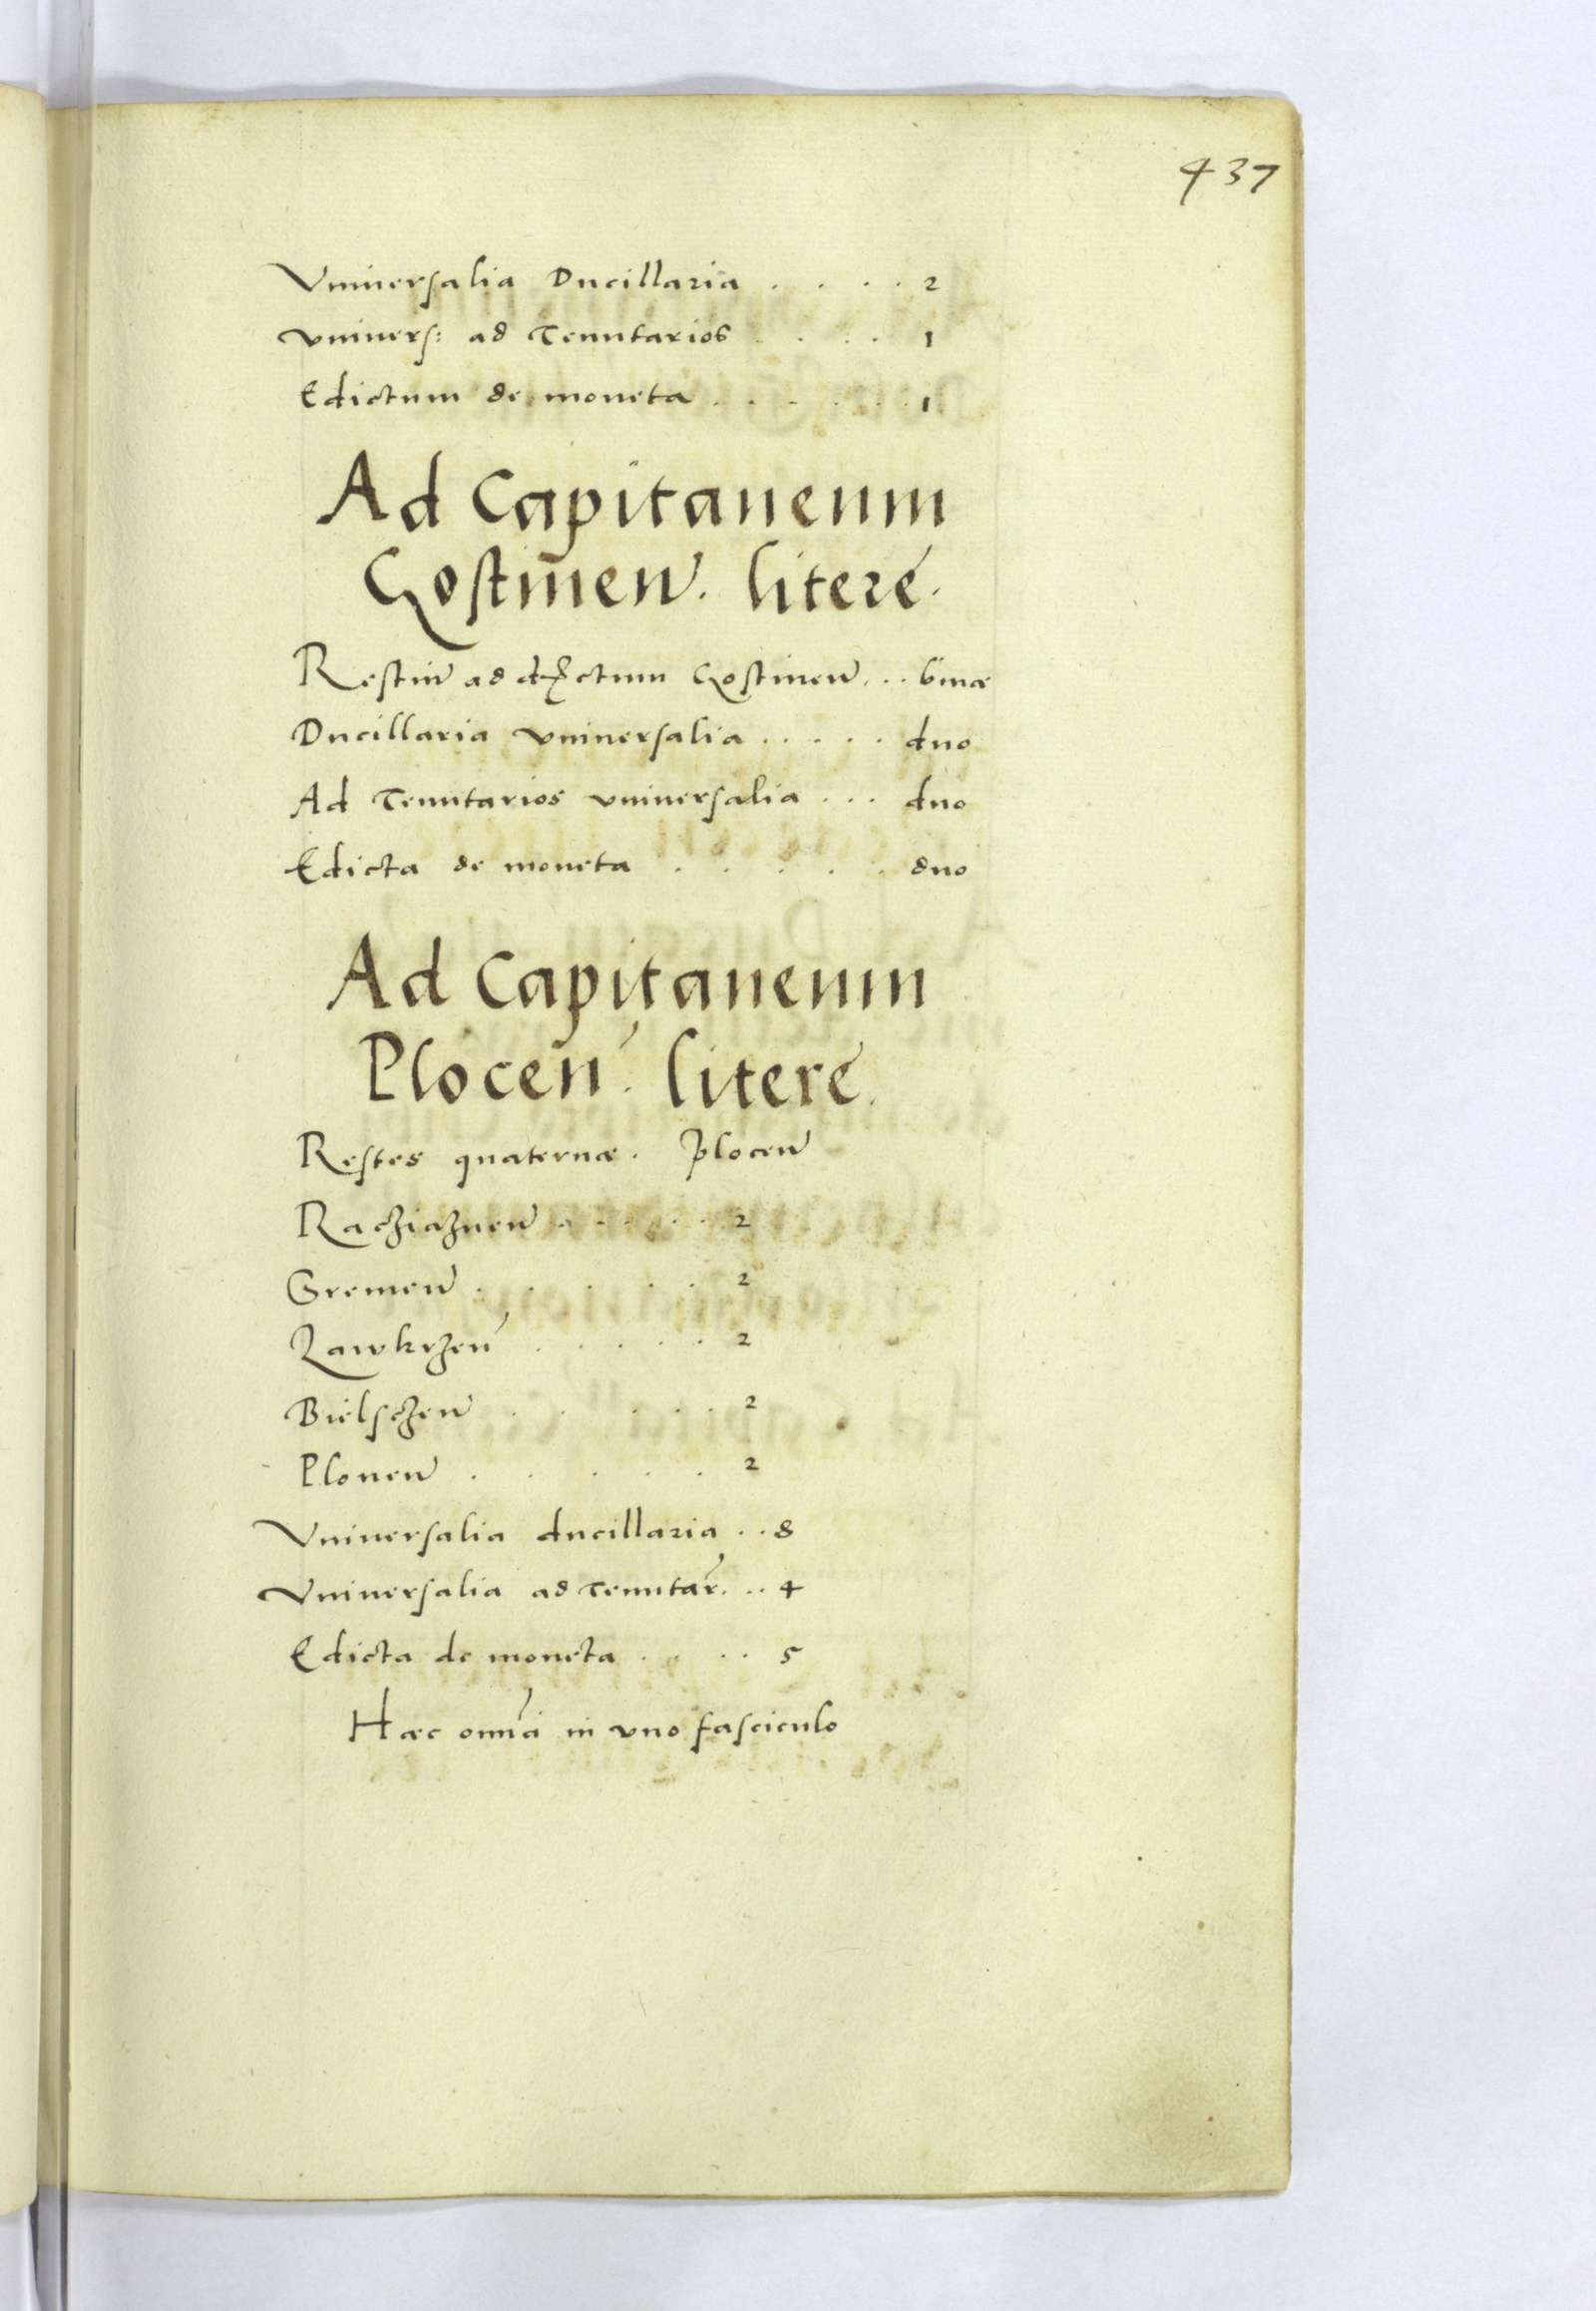 437
Vniuersalia Ducillaria . . . . 2
vniuers: ad Tenutarios . . . . 1
Edictum de moneta . . . . . 1
Ad Capitaneum
Gostinen. litere.
Restiu ad Gostinen . . binæ
Ducillaria vniuersalia . . . . . duo
Ad Tenutarios vniuersalia . . . duo
Edicta de moneta . . . . . duo
Ad Capitaneum
Plocen. litere.
Restes quaternæ. Plocen
Racziaznen . . . . . 2
Sremen . . . . . 2
Zawkrzen . . . . . 2
Bielsczen . . . . . 2
Plonen . . . . . 2
Vniuersalia ducillaria . . 8
Vniuersalia ad Tenutar. . . 4
Edicta de moneta . . . . 5
Hæc omnia in vno fasciculo